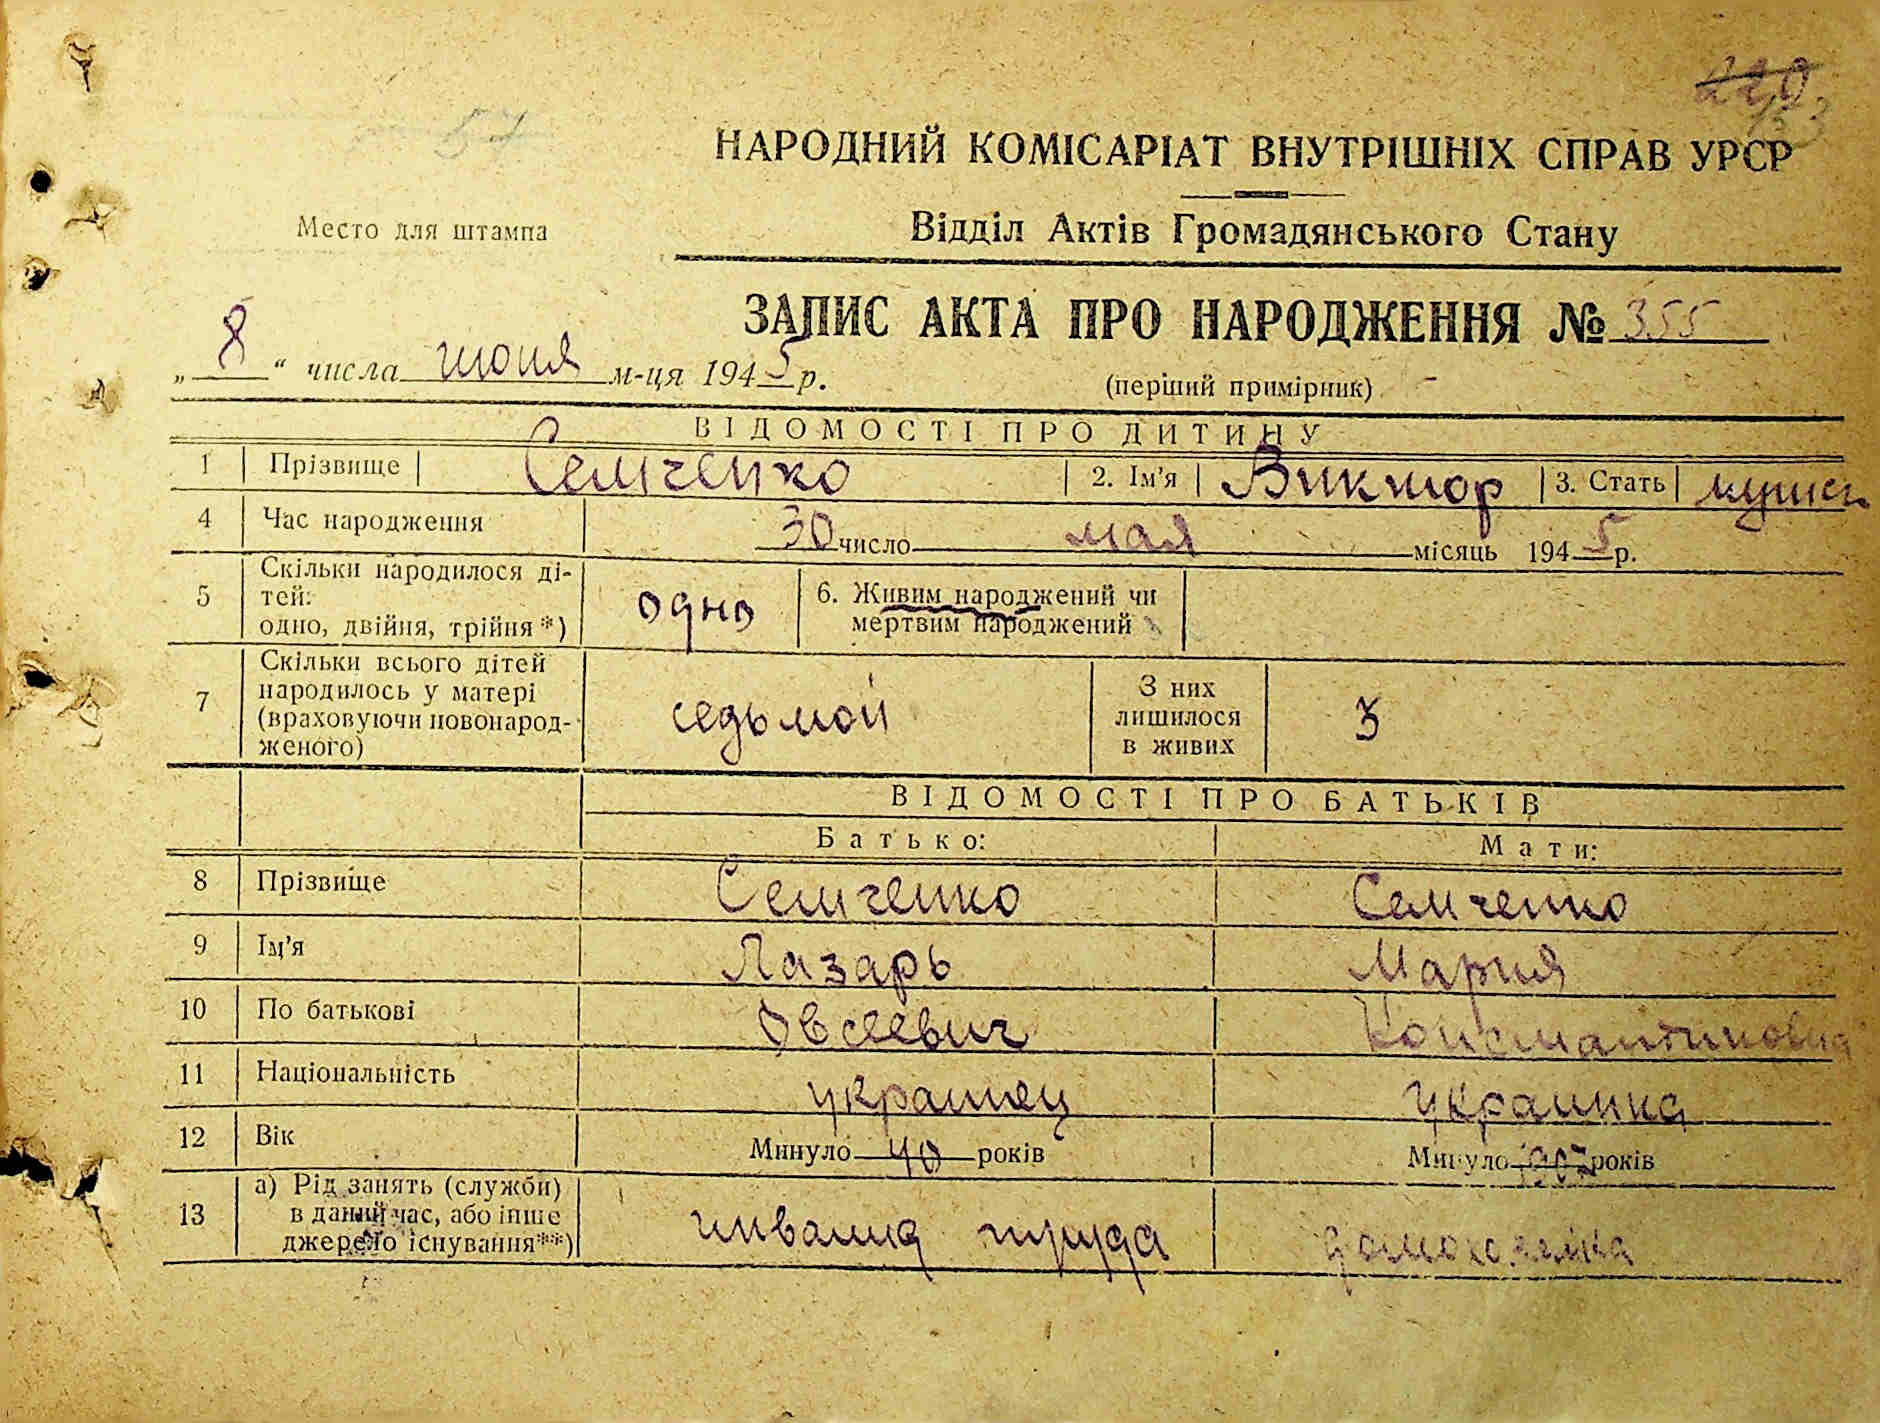 220
153
57
НАРОДНИЙ КОМІСАРІАТ ВНУТРІШНІХ СПРАВ УРСР
Место для штампа
Відділ Актів Громадянського Стану
ЗАПИС АКТА ПРО НАРОДЖЕННЯ № 355
„ 8 “ числа июня м-ця 1945 р.
(перший примірник)
ВІДОМОСТІ ПРО ДИТИНУ
1 Прізвище Семченко 2. Ім'я Виктор 3. Стать
4 Час народження 30 число мая місяць 1945 р.
5 Скільки народилося ді-
тей:
одно, двійня, трійня*) одно 6. Живим народжений чи
мертвим народжений
7 Скільки всього дітей
народилось у матері
(враховуючи новонарод-
женого) седьмой З них
лишилося
в живих 3
ВІДОМОСТІ ПРО БАТЬКІВ
Батько: Мати:
8 Прізвище Семченко Семченко
9 Ім'я Лазарь Мария
10 По батькові Овсеевич Константиновна
11 Національність украинец украинка
12 Вік Минуло 40 років Минуло 1907 років
13 а) Рід занять (служби)
в даний час, або інше
джерело існування**) инвалид труда домохозяйка